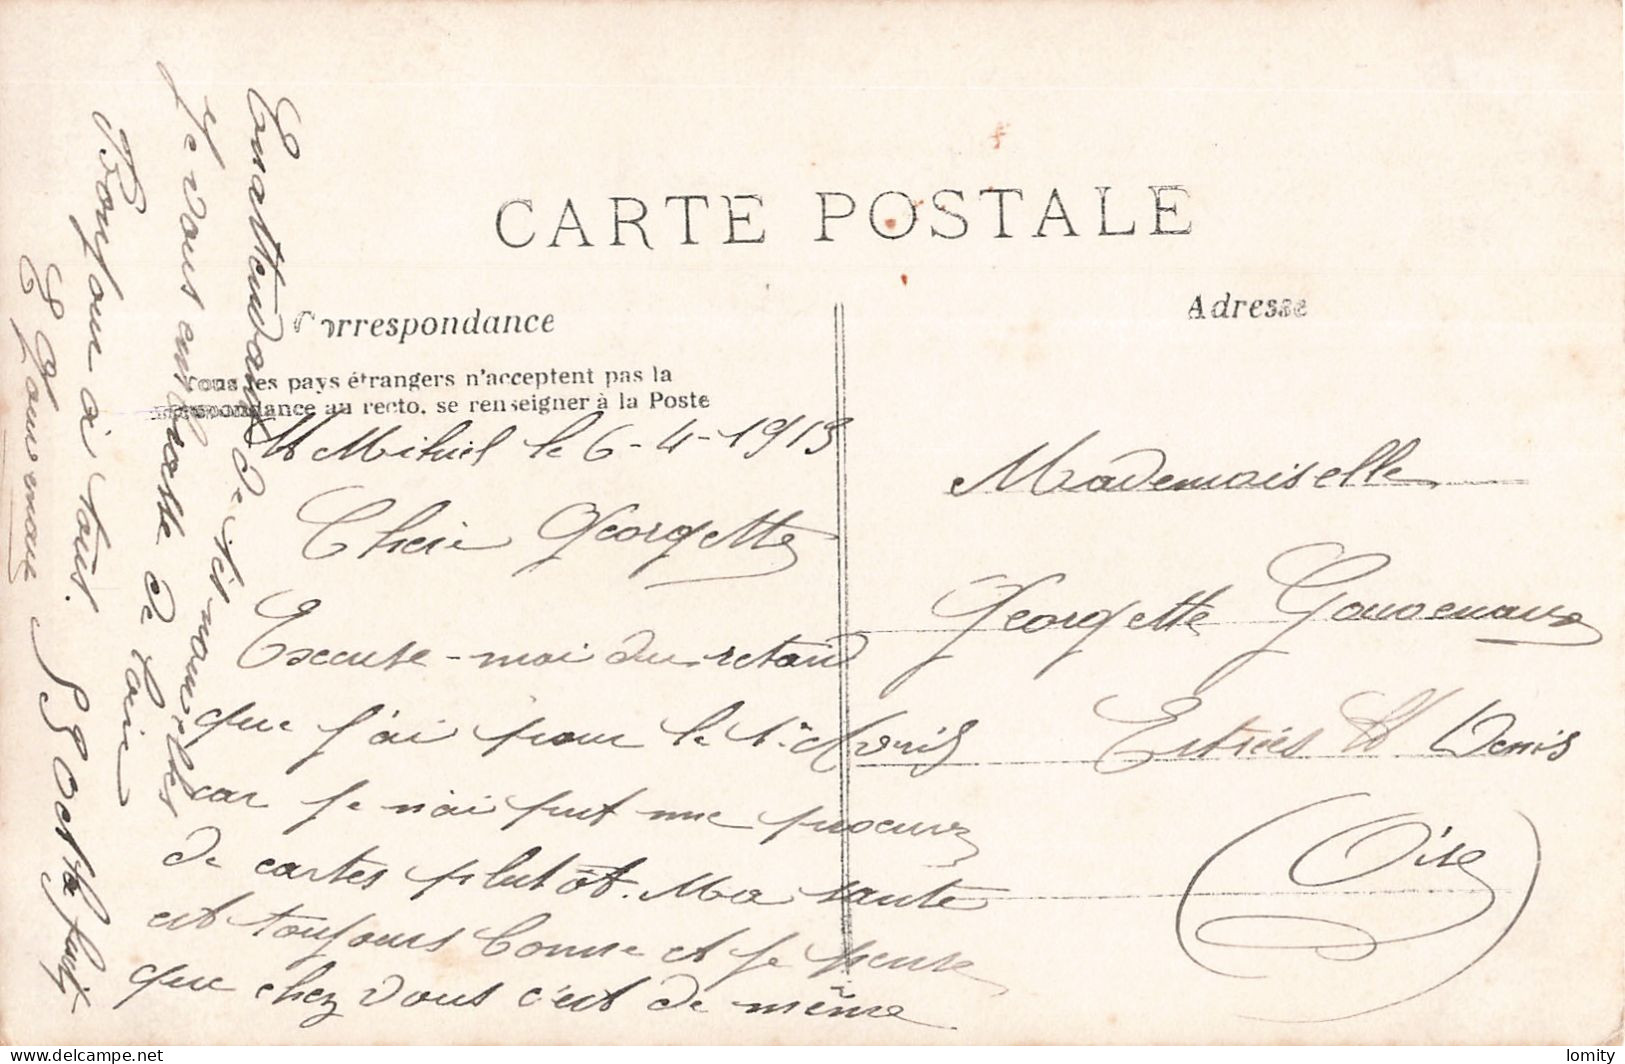 CARTE POSTALE
Correspondance
Adresse
Tous les pays étrangers n'acceptent pas la
correspondance au recto, se renseigner à la Poste
St Mihiel le 6-4-1913
Cheri Georgette
Excuse-moi du retard
que j'ai pour le 1er Avril
car je n'ai put me procurez
de cartes plutôt. Ma sante
est toujours bonne et je pense
que chez vous c'est de même
En attendant de tes nouvelles
Je vous embrasse de loin
Bonjour à tous.
Mademoiselle
Georgette Gouvenaux
Estrées St Denis
(Oise)
delcampe.net
lomity